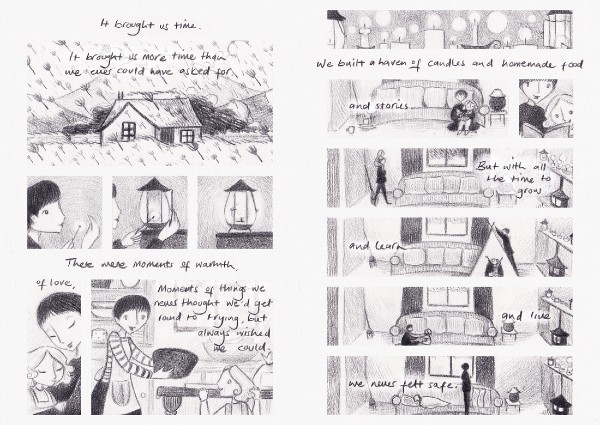 It brought us time.
It brought us more time than
we ever could have asked for.
There were moments of warmth,
of love,
Moments of things we
never thought we'd get
round to trying, but
always wished
we could.
We built a haven of candles and homemade food
and stories.
But with all
the time to
grow
and learn
and live
we never felt safe.